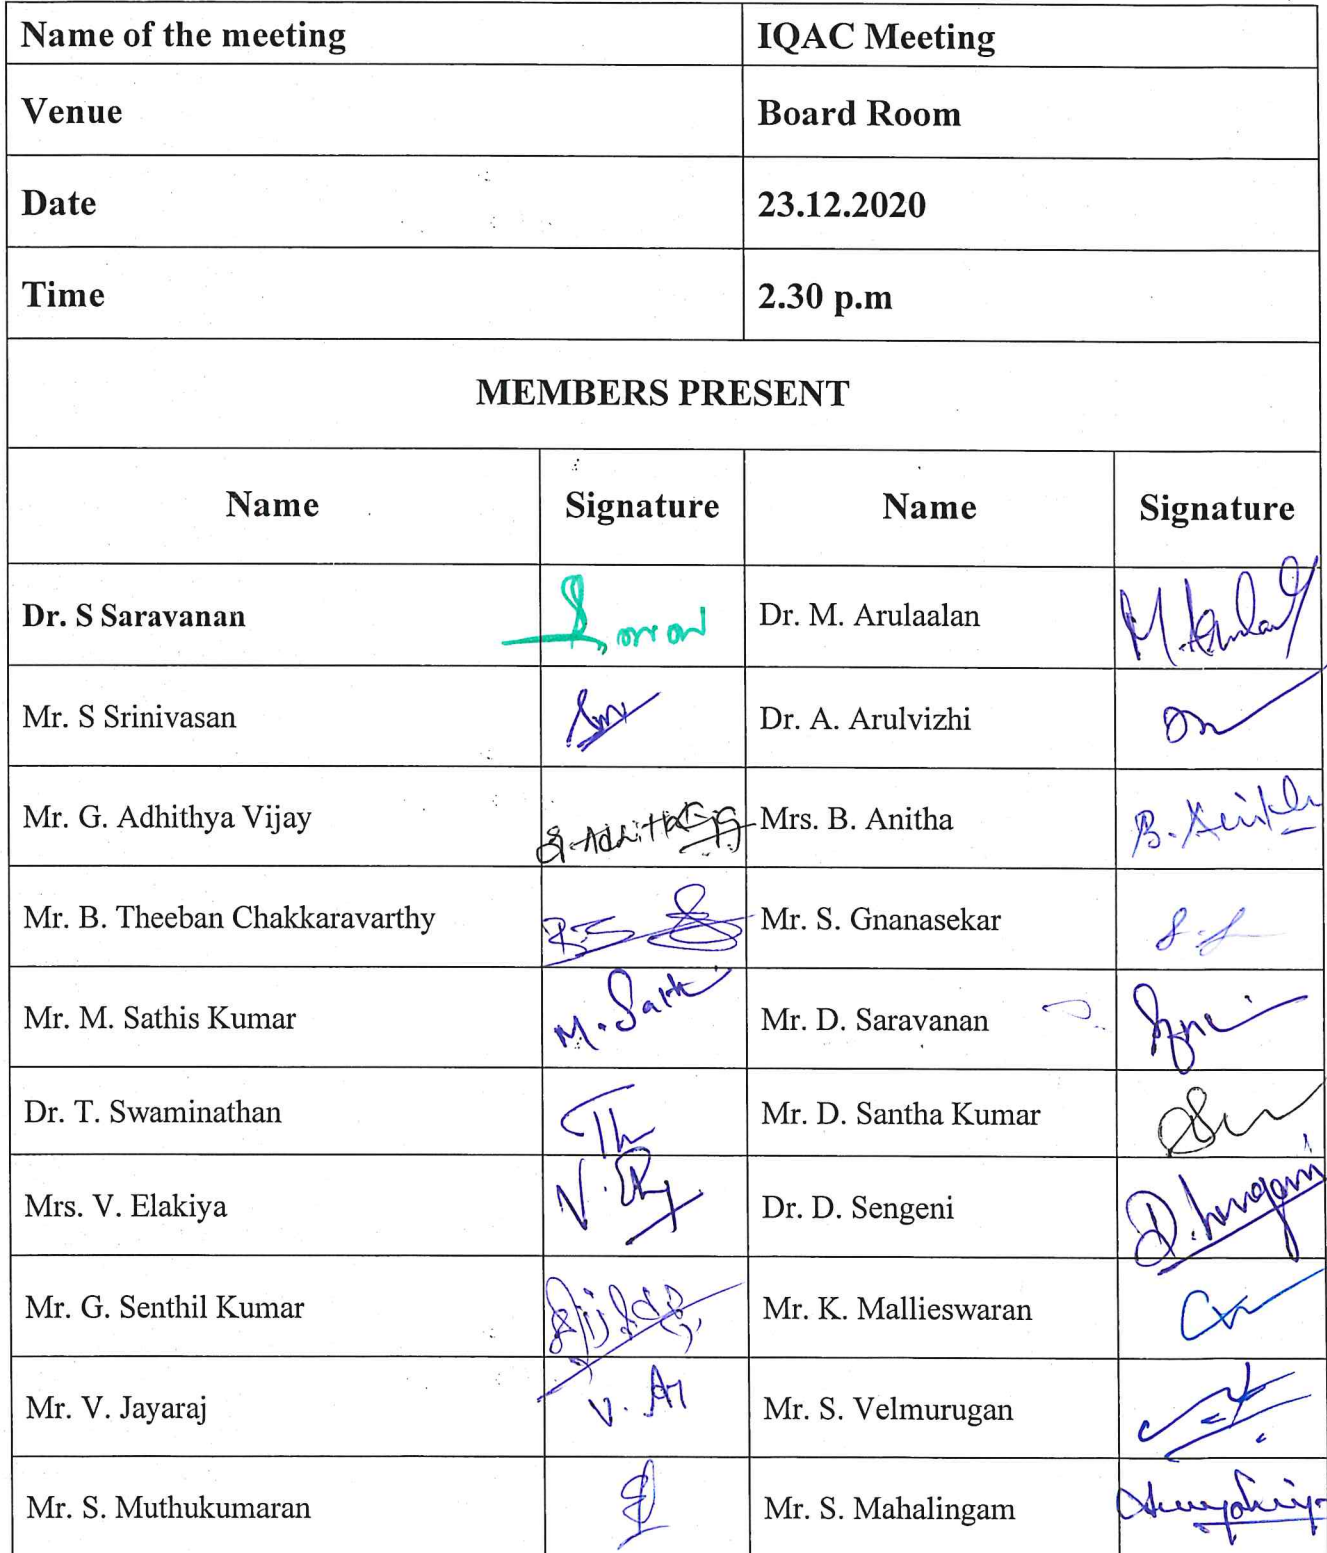 Name of the meeting IQAC Meeting
Venue Board Room
Date 23.12.2020
Time 2.30 p.m
MEMBERS PRESENT
Name Signature Name Signature
Dr. S Saravanan Dr. M. Arulaalan
Mr. S Srinivasan Dr. A. Arulvizhi
Mr. G. Adhithya Vijay Mrs. B. Anitha
Mr. B. Theeban Chakkaravarthy Mr. S. Gnanasekar
Mr. M. Sathis Kumar Mr. D. Saravanan
Dr. T. Swaminathan Mr. D. Santha Kumar
Mrs. V. Elakiya Dr. D. Sengeni
Mr. G. Senthil Kumar Mr. K. Mallieswaran
Mr. V. Jayaraj Mr. S. Velmurugan
Mr. S. Muthukumaran Mr. S. Mahalingam